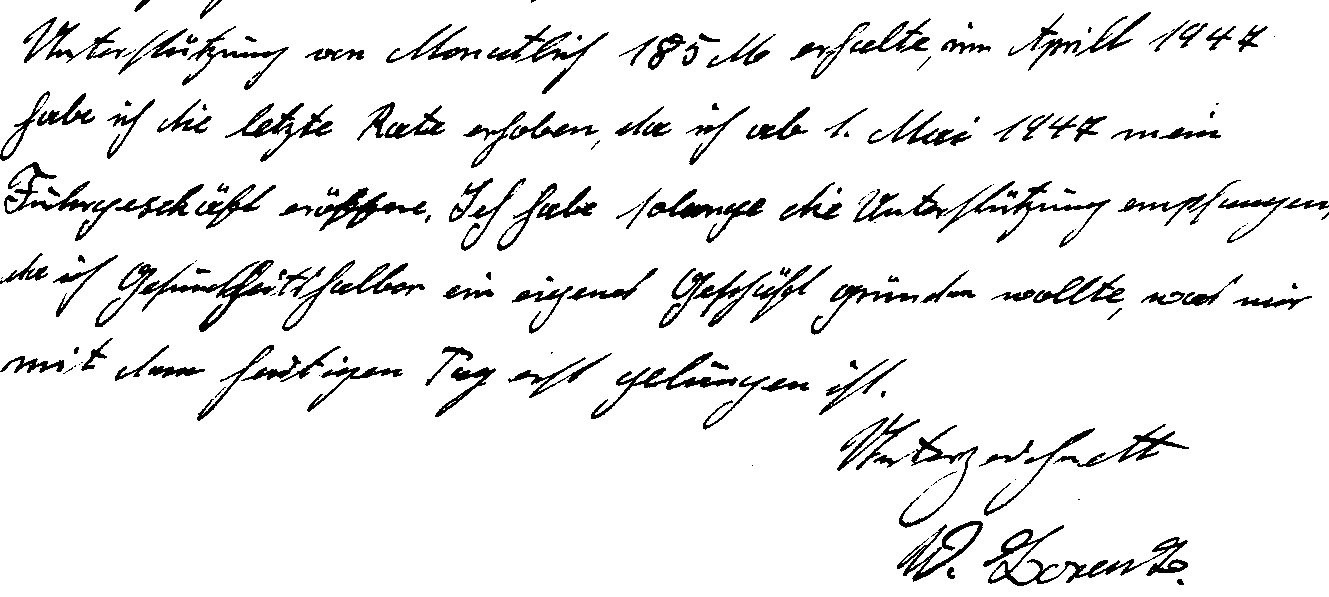 Unterstützung von Monatlich 185 M erhalte, im Aprill 1947
habe ich die letzte Rate erhoben, da ich ab 1. Mai 1947 mein
Fuhrgeschäft eröffne. Ich habe solange die Unterstützung empfangen,
da ich Gesundheitshalber ein eigenes Geschäft gründen wollte, was mir
mit dem heutigen Tag erst gelungen ist.
Unterzeichnett
W. Lorenz.